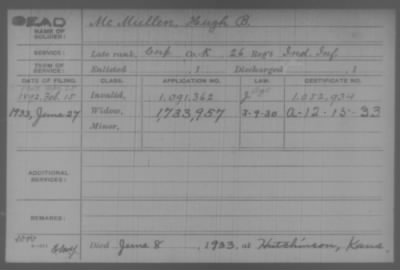 DEAD
NAME OF SOLDIER: Mc Mullen, Hugh B.
SERVICE: Late rank, Corp Co. K 26 Reg't Ind. Inf
TERM OF SERVICE: Enlisted , 1 Discharged , 1
DATE OF FILING. CLASS. APPLICATION NO. LAW. CERTIFICATE NO.
1892, Feb. 15 Invalid, 1,091,362 1,052,934
1933, June 27 Widow, 1,733,957 7-9-30 A-12-15-33
Minor,
ADDITIONAL SERVICES:
REMARKS:
Died June 8 , 1933, at Hutchinson, Kans.